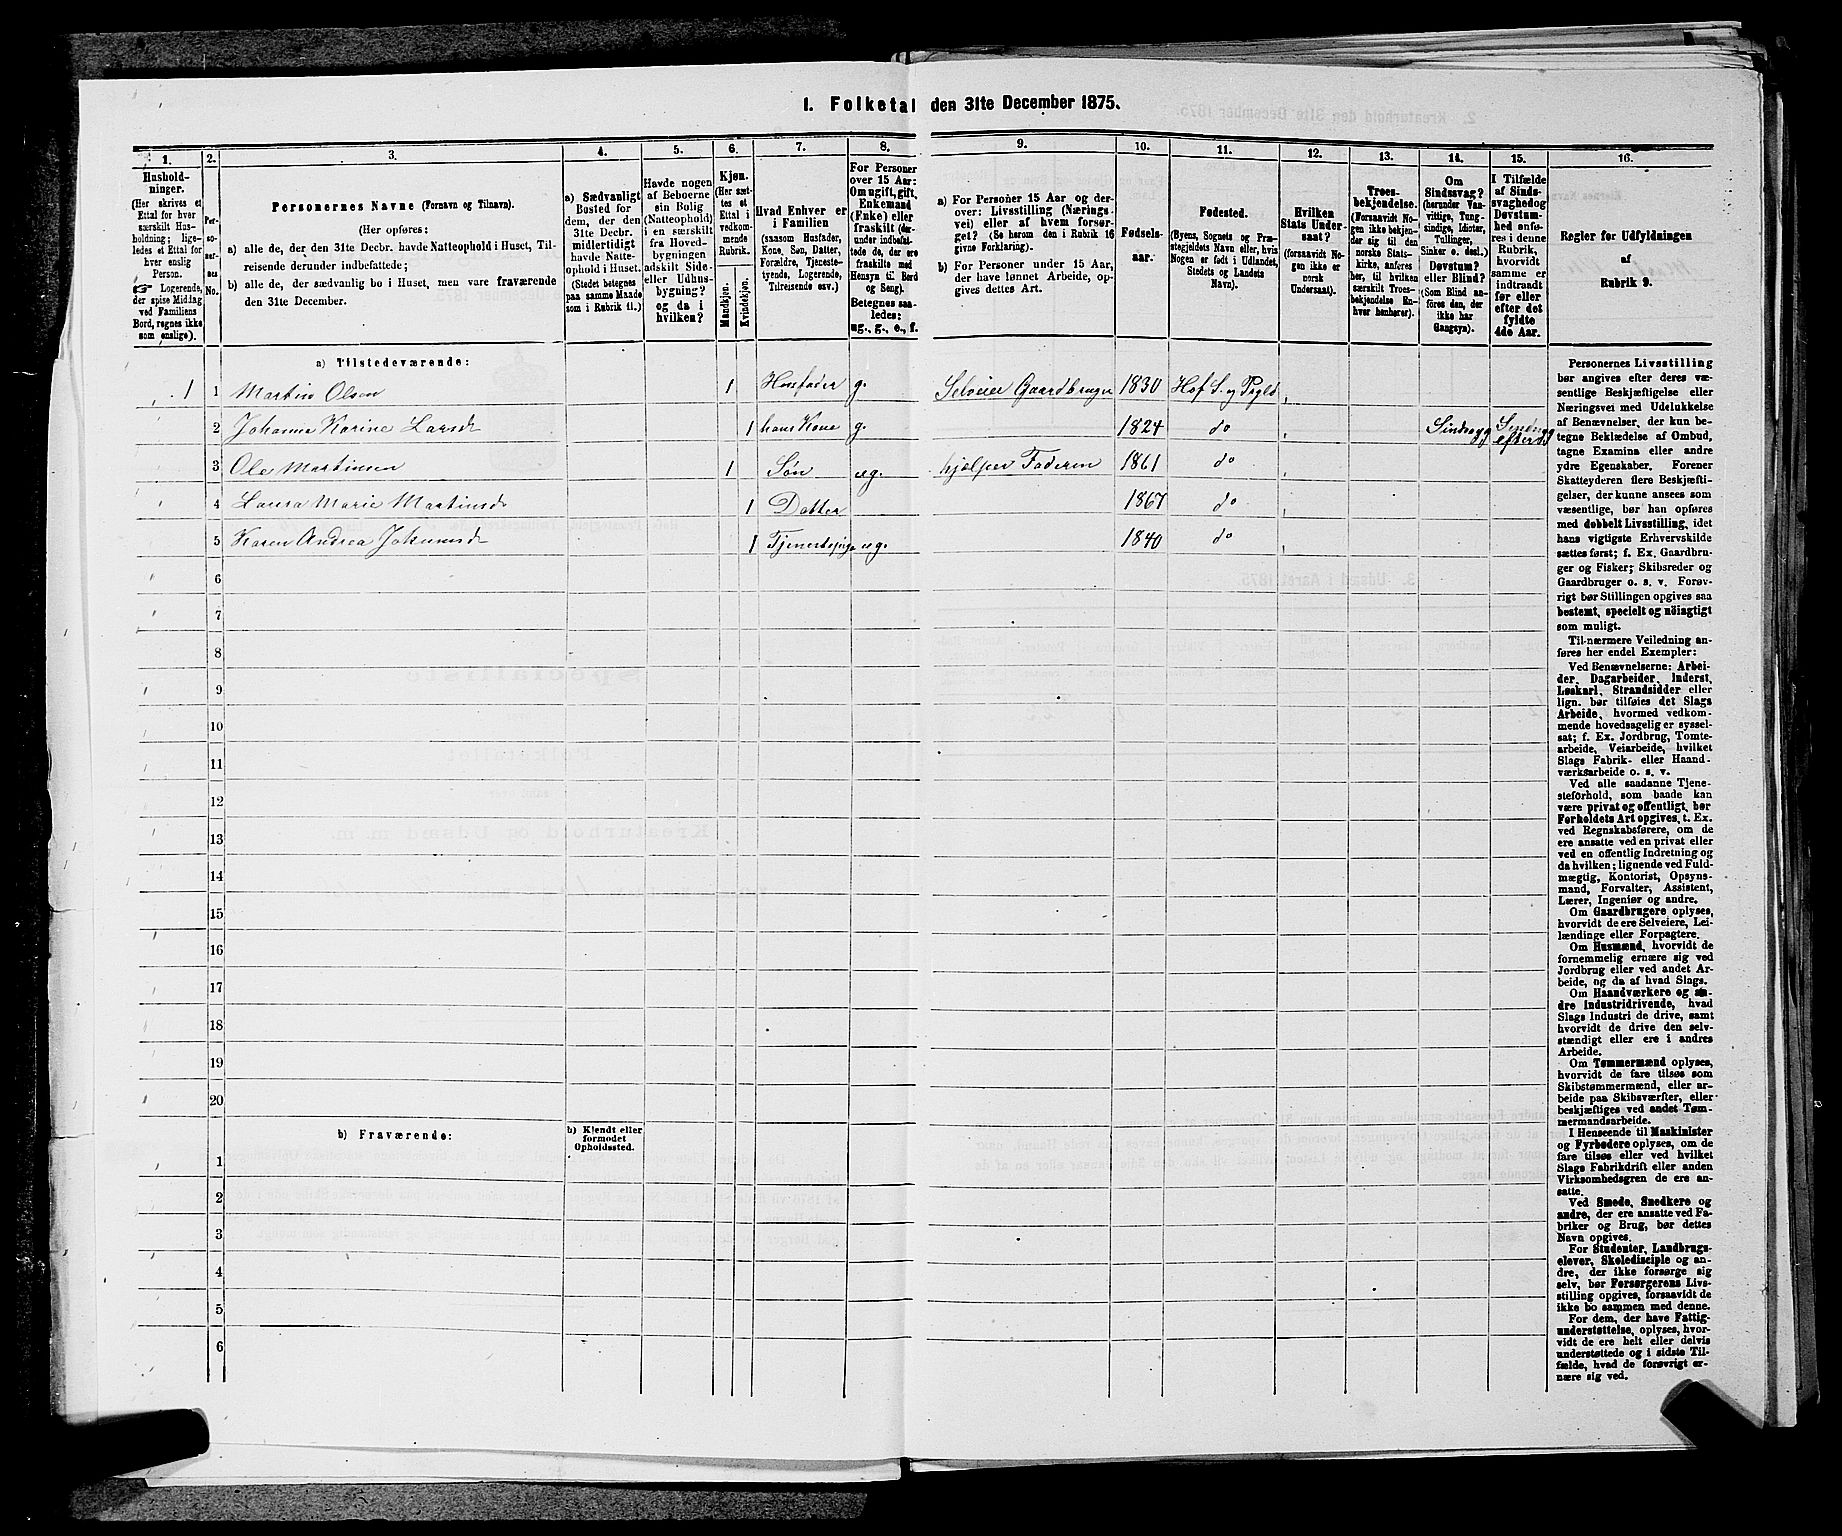 1. Folketal den 31te December 1875.
1. 2. 3. 4. 5. 6. 7. 8. 9. 10. 11. 12. 13. 14. 15. 16.
Hushold-
ninger.
(Her skrives et
Ettal for hver
særskilt Hus-
holdning; lige-
ledes et Ettal for
hver enslig
Person.
☞ Logerende,
der spise Middag
ved Familiens
Bord, regnes ikke
som enslige).
Per-
so-
ner-
nes
No.
Personernes Navne (Fornavn og Tilnavn).
(Her opføres:
a) alle de, der den 31te Decbr. havde Natteophold i Huset, Til-
reisende derunder indbefattede;
b) alle de, der sædvanlig bo i Huset, men vare fraværende
den 31te December.
a) Sædvanligt
Bosted for
dem, der den
31te Decbr.
midlertidigt
havde Natte-
ophold i Huset.
(Stedet betegnes
paa samme Maade
som i Rubrik 11.)
Havde nogen
af Beboerne
sin Bolig
(Natteophold)
i en særskilt
fra Hoved-
bygningen
adskilt Side-
eller Udhus-
bygning?
og da i
hvilken?
Kjøn.
(Her sæt-
tes et
Ettal i
vedkom-
mende
Rubrik.
Mandkjøn.
Kvindekjøn.
Hvad Enhver er
i Familien
(saasom Husfader,
Kone, Søn, Datter,
Forældre, Tjeneste-
tyende, Logerende,
Tilreisende osv.)
For Personer
over 15 Aar:
Om ugift, gift,
Enkemand
(Enke) eller
fraskilt (der-
under indbefat-
tede de, der ere
fraskilte med
Hensyn til Bord
og Seng).
Betegnes saa-
ledes:
ug., g., e., f.
a) For Personer 15 Aar og der-
over: Livsstilling (Nærings-
vei) eller af hvem forsør-
get? (Se herom den i Rubrik 16
givne Forklaring).
b) For Personer under 15 Aar,
der have lønnet Arbeide, op-
gives dettes Art.
Fødsels-
aar.
Fødested.
(Byens, Sognets og Præ-
stegjeldets Navn eller, hvis
Nogen er født i Udlandet,
Stedets og Landets
Navn).
Hvilken
Stats Under-
saat?
(forsaavidt No-
gen ikke er
norsk
Undersaat).
Troes-
bekjendelse.
(Forsaavidt No-
gen ikke bekjen-
der sig til den
norske Stats-
kirke, anføres
her, til hvilken
særskilt Troes-
bekjendelse En-
hver henhører).
Om
Sindssvag?
(herunder Van-
vittige, Tung-
sindige, Idioter,
Tullinger,
Sinker o. desl.)
Døvstum?
eller Blind?
(Som Blind an-
føres den, der
ikke har
Gangsyn).
I Tilfælde
af Sinds-
svaghed og
Døvstum-
hed anfø-
res i denne
Rubrik,
hvorvidt
samme er
indtraadt
før eller
efter det
fyldte
4de Aar.
Regler for Udfyldningen
af
Rubrik 9.
a) Tilstedeværende:
1 1 Martin Olsen 1 Husfader g. Selveier Gaardbruger 1830 Hof S. og Pgld
2 Johanne Karine Larsd 1 hans Kone g. 1824 do
3 Ole Martinsen 1 Søn ug. hjelper Faderen 1861 do
4 Laura Marie Martinsd 1 Datter 1867 do
5 Karen Andrea 1 ug. 1840 do
6
7
8
9
10
11
12
13
14
15
16
17
18
19
20
b) Fraværende:
b) Kjendt eller
formodet
Opholdssted.
1
2
3
4
5
6
Personernes Livsstilling
bør angives efter deres væ-
sentlige Beskjæftigelse eller
Næringsvei med Udelukkelse
af Benævnelser, der kun be-
tegne Beklædelse af Ombud,
tagne Examina eller andre
ydre Egenskaber. Forener
Skatteyderen flere Beskjæfti-
gelser, der kunne ansees som
væsentlige, bør han opføres
med dobbelt Livsstilling, idet
hans vigtigste Erhvervskilde
sættes først; f. Ex. Gaardbru-
ger og Fisker; Skibsreder og
Gaardbruger o. s. v. Forøv-
rigt bør Stillingen opgives saa
bestemt, specielt og nöiagtigt
som muligt.
Til nærmere Veiledning an-
føres her endel Exempler:
Ved Benævnelserne: Arbei-
der, Dagarbeider, Inderst,
Løskarl, Strandsidder eller
lign. bør tilføies det Slags
Arbeide, hvormed vedkom-
mende hovedsagelig er syssel-
sat; f. Ex. Jordbrug, Tomte-
arbeide, Veiarbeide, hvilket
Slags Fabrik- eller Haand-
værksarbeide o. s. v.
Ved alle saadanne Tjene-
steforhold, som baade kan
være privat og offentligt, bør
Forholdets Art opgives, t. Ex.
ved Regnskabsførere, om de
ere ansatte ved en privat eller
ved en offentlig Indretning og
da hvilken; lignende ved Fuld-
mægtig, Kontorist, Opsyns-
mand, Forvalter, Assistent,
Lærer, Ingeniør og andre.
Om Gaardbrugere oplyses,
hvorvidt de ere Selveiere, Lei-
lændinge eller Forpagtere.
Om Husmænd, hvorvidt de
fornemmelig ernære sig ved
Jordbrug eller ved andet Ar-
beide, og da af hvad Slags.
Om Haandværkere og an-
dre Industridrivende, hvad
Slags Industri de drive, samt
hvorvidt de drive den selv-
stændigt eller ere i andres
Arbeide.
Om Tømmermænd oplyses,
hvorvidt de fare tilsøs som
Skibstømmermænd, eller ar-
beide paa Skibsværfter, eller
beskjæftiges ved andet Tøm-
mermandsarbeide.
I Henseende til Maskinister
og Fyrbødere oplyses, om de
fare tilsøs eller ved hvilket
Slags Fabrikdrift eller anden
Virksomhedsgren de ere an-
satte.
Ved Smede, Snedkere og
andre, der ere ansatte ved Fa-
briker og Brug, bør dettes
Navn opgives.
For Studenter, Landbrugs-
elever, Skoledisciple og an-
dre, der ikke forsørge sig
selv, bør Forsørgerens Livs-
stilling opgives, forsaavidt de
ikke bo sammen med denne.
For dem, der have Fattig-
understøttelse, oplyses, hvor-
vidt de ere helt eller delvis
understøttede og i sidste Til-
fælde, hvad de forøvrigt er-
nære sig ved.